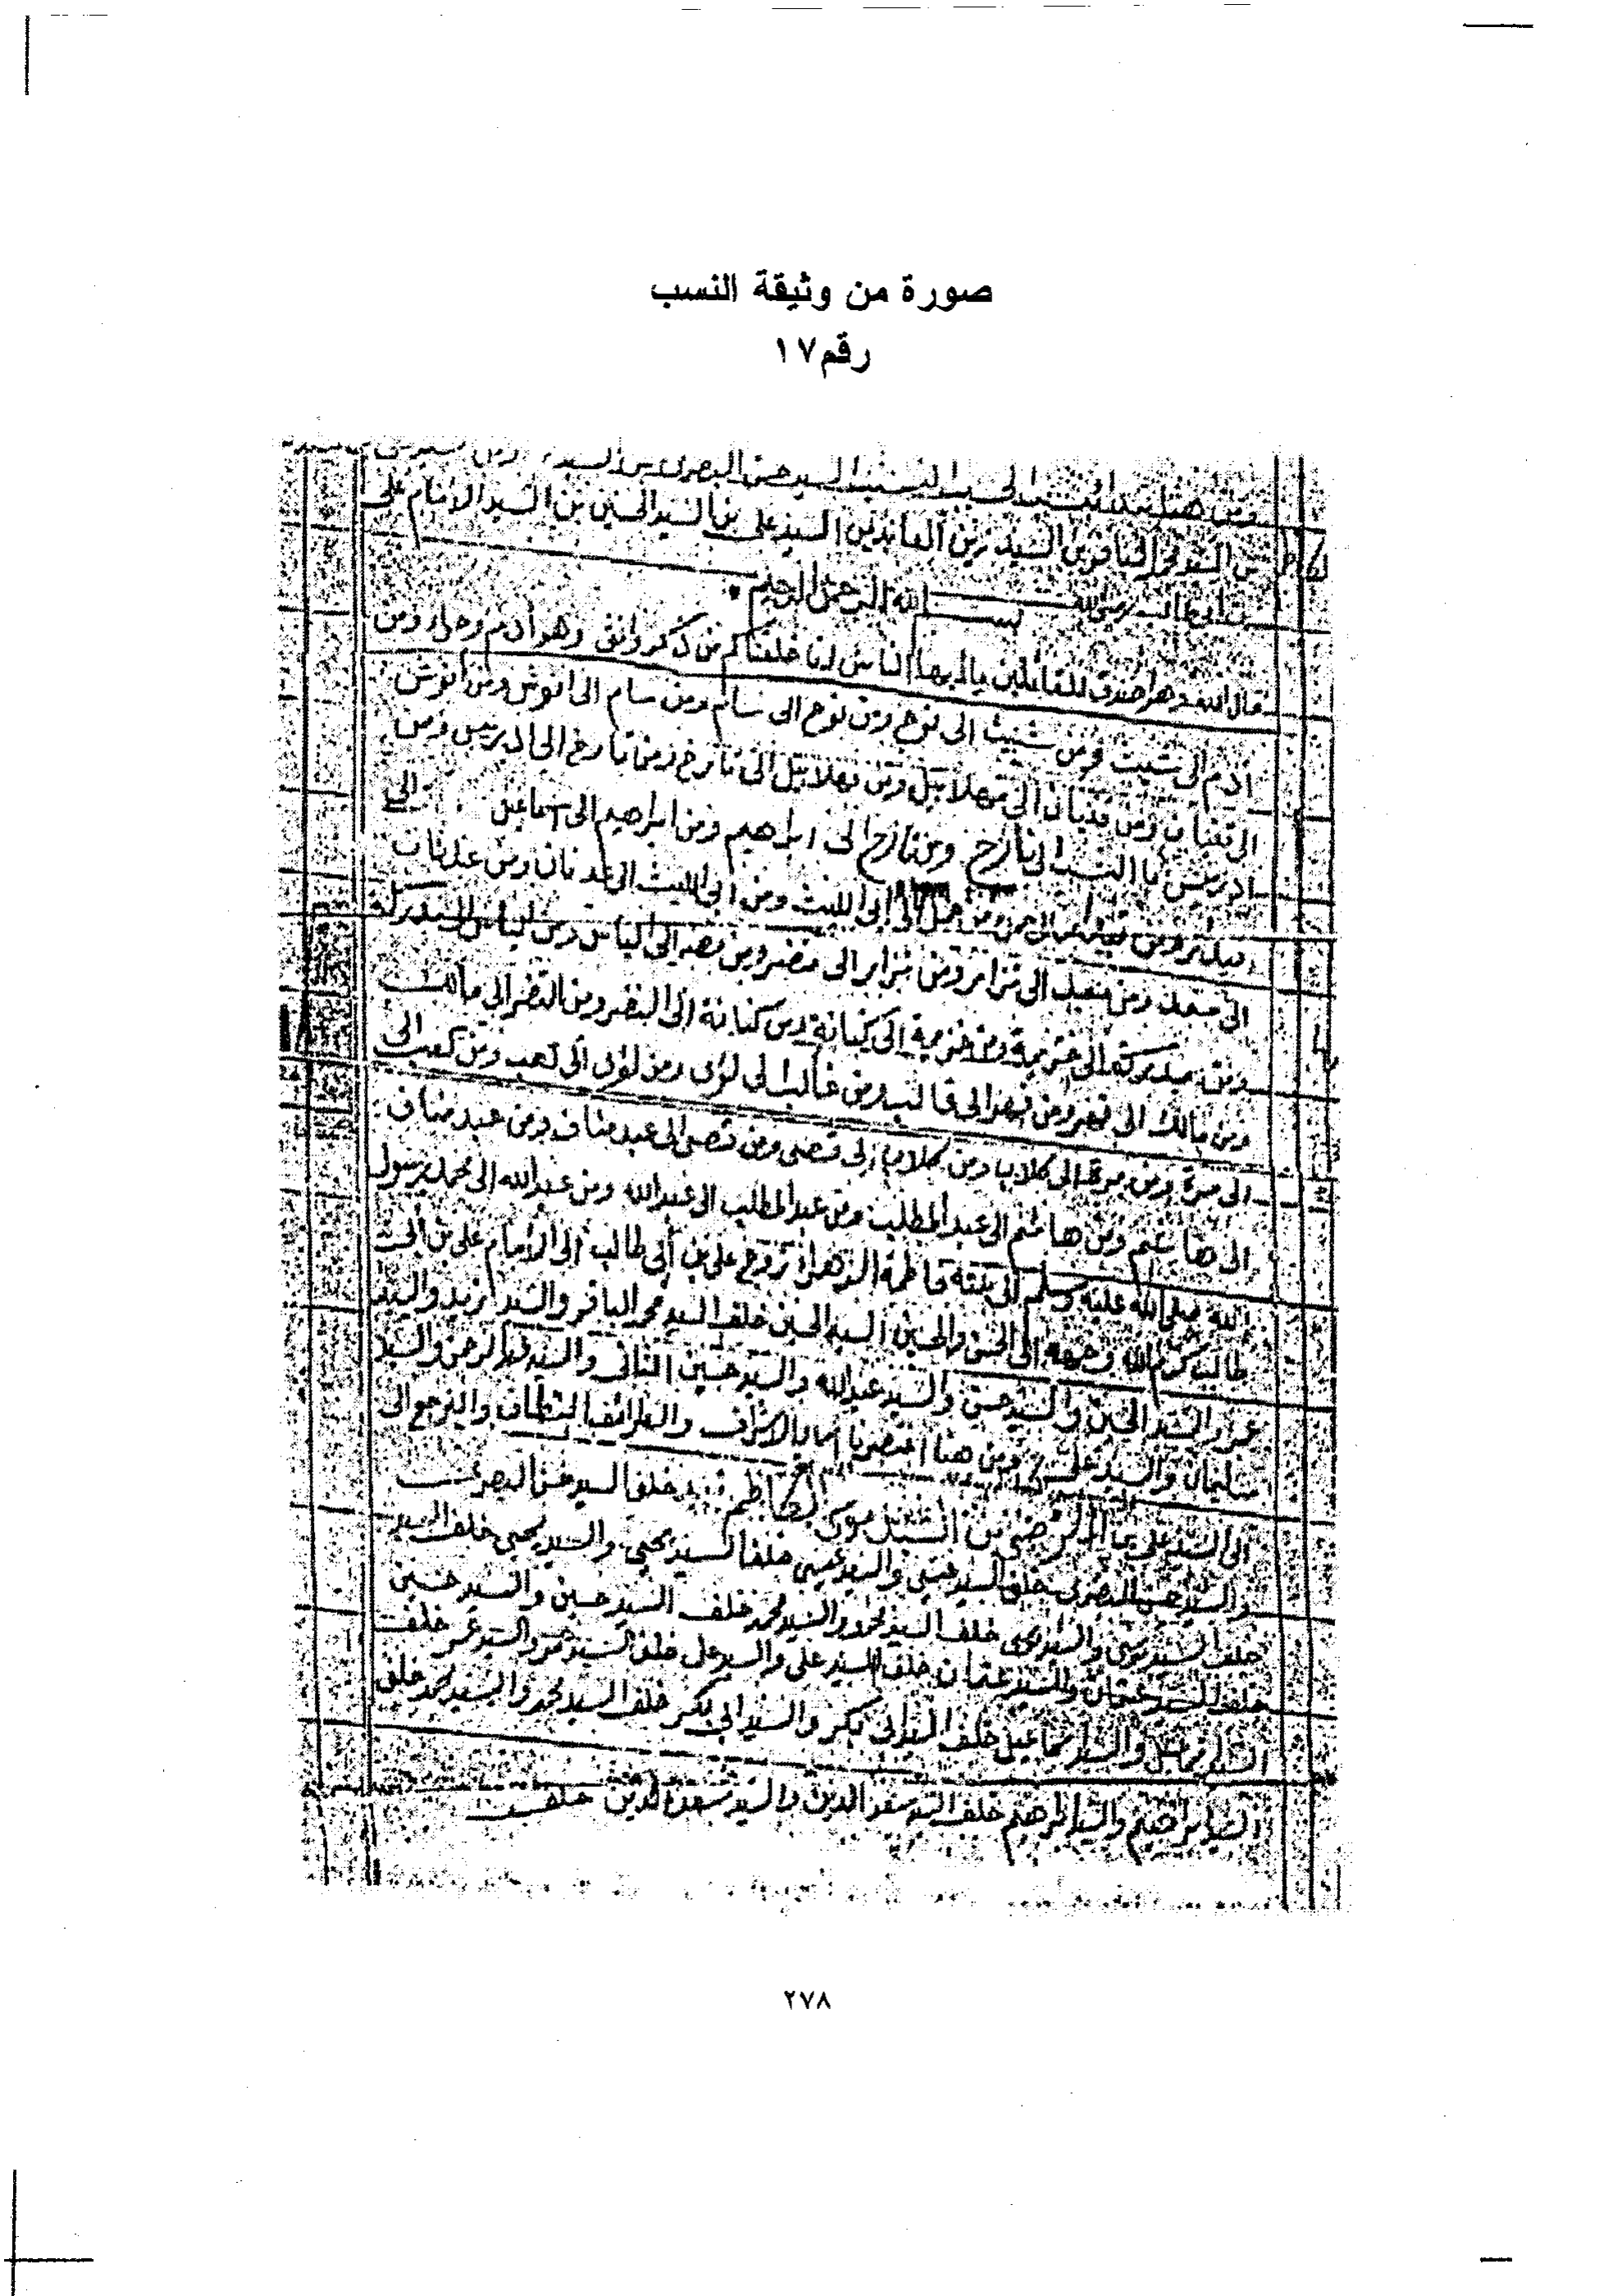 صورة من وثيقة النسب
رقم ١٧
السيد حسن البصرى بن السيد
السيد محمد الباقر بن السيد زين العابدين السيد على بن السيد الحسين بن السيد الامام على
بن ابى طالب رضى الله بسم الله الرحمن الرحيم
قال الله وهو اصدق القائلين يا ايها الناس انا خلقناكم من ذكر وانثى وهو آدم وحواء ومن
ادم الى شيث ومن شيث الى نوح ومن نوح الى سام ومن سام الى انوش ومن انوش
الى قينان ومن قينان الى مهلائيل ومن مهلائيل الى تارخ ومن تارخ الى ادريس ومن
ادريس الى تارخ ومن تارخ الى ابراهيم ومن ابراهيم الى اسماعيل الى
الى الليث ومن الى الليث الى عدنان ومن عدنان
الى معد ومن معد الى نزار ومن نزار الى مضر ومن مضر الى الياس ومن الياس الى مدركة
ومن مدركة الى خزيمة ومن خزيمة الى كنانة ومن كنانة الى النضر ومن النضر الى مالك
ومن مالك الى فهر ومن فهر الى غالب ومن غالب الى لؤى ومن لؤى الى كعب ومن كعب الى
الى مرة ومن مرة الى كلاب ومن كلاب الى قصى ومن قصى الى عبد مناف ومن عبد مناف
الى هاشم ومن هاشم الى عبد المطلب ومن عبد المطلب الى عبد الله ومن عبد الله الى محمد رسول
الله صلى الله عليه وسلم الى بنته فاطمة الزهراء زوج على بن أبى طالب الى الامام على بن ابى
طالب كرم الله وجهه الى الحسن والحسين السيد الحسين خلف السيد محمد الباقر والسيد زيد والسيد
عمر والسيد الحسين والسيد حسن والسيد عبد الله والسيد حسين الثانى والسيد عبد الرحمن والسيد
سليمان والسيد على ومن هنا اختصرنا الاشراف والطرائف النظاف والنرجع الى
الى السيد على الرضى بن السيد موسى الكاظم خلف السيد حسن البصرى
والسيد حسن البصرى خلف السيد عيسى والسيد عيسى خلف السيد يحيى والسيد يحيى خلف السيد
خلف السيد موسى والسيد موسى خلف السيد محمد والسيد محمد خلف السيد حسين والسيد حسين
خلف السيد عثمان والسيد عثمان خلف السيد على والسيد على خلف السيد عمر والسيد عمر خلف
السيد اسماعيل والسيد اسماعيل خلف السيد ابى بكر والسيد ابى بكر خلف السيد محمد والسيد محمد خلف
السيد ابراهيم والسيد ابراهيم خلف السيد سعد الدين والسيد سعد الدين خلف
٢٧٨